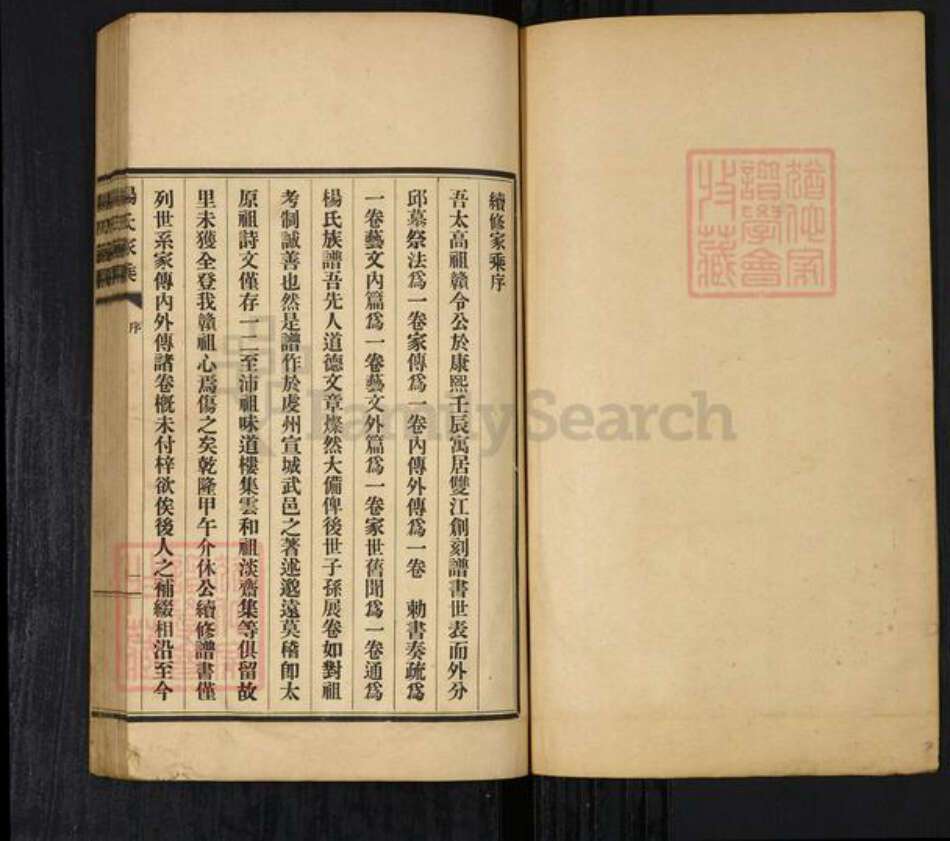 續修家乘序
吾太高祖贛令公於康熙壬辰寓居雙江創刻譜書世表而外分
邱墓祭法爲一卷家傳爲一卷內傳外傳爲一卷　勅書奏疏爲
一卷藝文內篇爲一卷藝文外篇爲一卷家世舊聞爲一卷通爲
楊氏族譜吾先人道德文章燦然大備俾後世子孫展卷如對祖
考制誠善也然是譜作於虔州宣城武邑之著述邈遠莫稽卽太
原祖詩文僅存一二至沛祖味道樓集雲和祖淡齋集等俱留故
里未獲全登我贛祖心焉傷之矣乾隆甲午介休公續修譜書僅
列世系家傳內外傳諸卷槪未付梓欲俟後人之補綴相沿至今
楊氏家乘
序
譜學會
收藏
FamilySearch